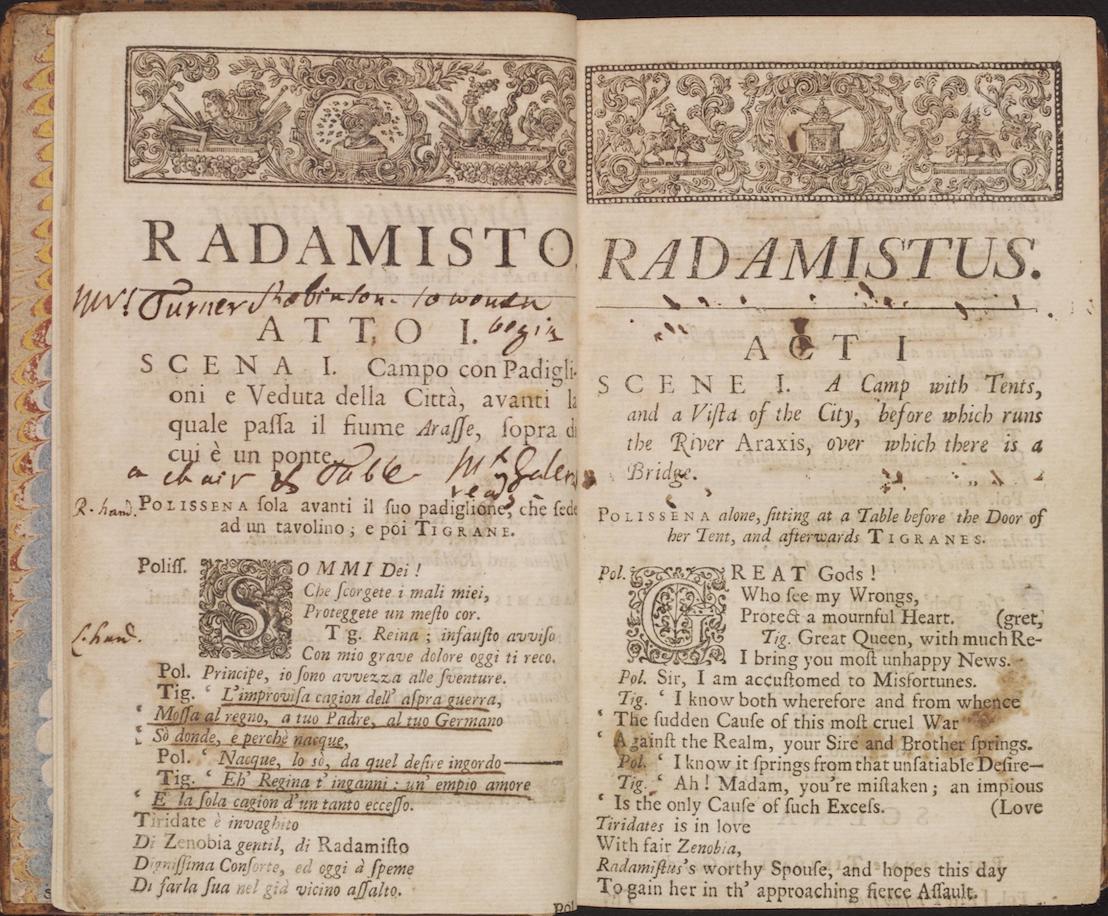 RADAMISTO
Mrs Turner Robinson to women
ATTO I. begin
SCENA I. Campo con Padigli-
oni e Veduta della Città, avanti la
quale paſſa il fiume Araſſe, ſopra di
cui è un ponte.
a chair & Table Mr
ready
R. hand. POLISSENA ſola avanti il ſuo padiglione, che ſede
ad un tavolino; e poi TIGRANE.
Poliſſ. SOMMI Dei!
Che ſcorgete i mali miei,
Proteggete un meſto cor.
L. hand. Tig. Reina; infauſto avviſo
Con mio grave dolore oggi ti reco.
Pol. Principe, io ſono avvezza alle ſventure.
Tig. ‘ L'improviſa cagion dell' aſpra guerra,
‘ Moſſa al regno, a tuo Padre, al tuo Germano
‘ Sò donde, e perchè nacque,
Pol. ‘ Nacque, lo sò, da quel deſire ingordo——
Tig. ‘ Eh' Regina t' inganni: un' empio amore
‘ E la ſola cagion d'un tanto ecceſſo.
Tiridate è invaghito
Di Zenobia gentil, di Radamiſto
Digniſſima Conſorte, ed oggi à ſpeme
Di farla ſua nel già vicino aſſalto.
Pol
RADAMISTUS.
ACT I
SCENE I. A Camp with Tents,
and a Viſta of the City, before which runs
the River Araxis, over which there is a
Bridge.
POLISSENA alone, ſitting at a Table before the Door of
her Tent, and afterwards TIGRANES.
Pol. GREAT Gods!
Who ſee my Wrongs,
Protect a mournful Heart. (gret,
Tig. Great Queen, with much Re-
I bring you moſt unhappy News.
Pol. Sir, I am accuſtomed to Misfortunes.
Tig. ‘ I know both wherefore and from whence
‘ The ſudden Cauſe of this moſt cruel War
‘ Againſt the Realm, your Sire and Brother ſprings.
Pol. ‘ I know it ſprings from that unſatiable Deſire—
Tig. ‘ Ah! Madam, you're miſtaken; an impious
‘ Is the only Cauſe of ſuch Exceſs. (Love
Tiridates is in love
With fair Zenobia,
Radamiſtus's worthy Spouſe, and hopes this day
To gain her in th' approaching fierce Aſſault.